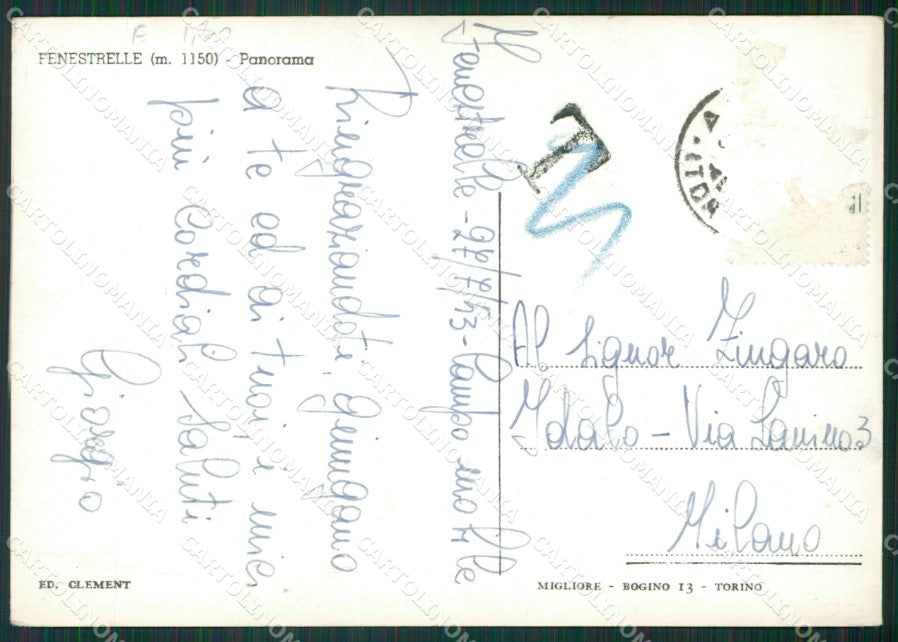 FENESTRELLE (m. 1150) - Panorama
Fenestrelle - 27/7/53 - Campo mobile
Ringraziandoti, giungano
a te ed ai tuoi i miei
più cordiali saluti
Giorgio
T
Al Signor Zingaro
Idalo - Via Lanino 3
Milano
ED. CLEMENT
MIGLIORE - BOGINO 13 - TORINO
CARTOLINOMANIA